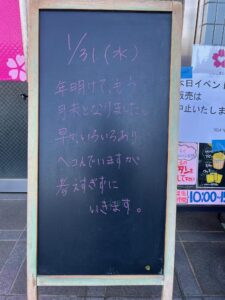 1/31(水)
年明けて、もう
月末となりました。
早い いろいろあり
へこんでいますが
考えすぎずに
いきます。
本日イベント
販売は
中止いたしま
10:00~18